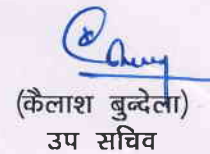 (कैलाश बुन्देला)
उप सचिव